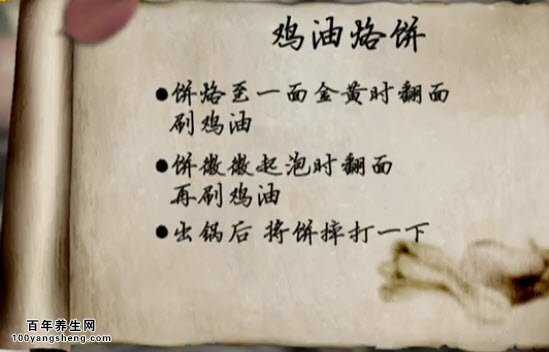 鸡油烙饼
●饼烙至一面金黄时翻面
刷鸡油
●饼微微起泡时翻面
再刷鸡油
●出锅后 将饼摔打一下
百年养生网
100yangsheng.com